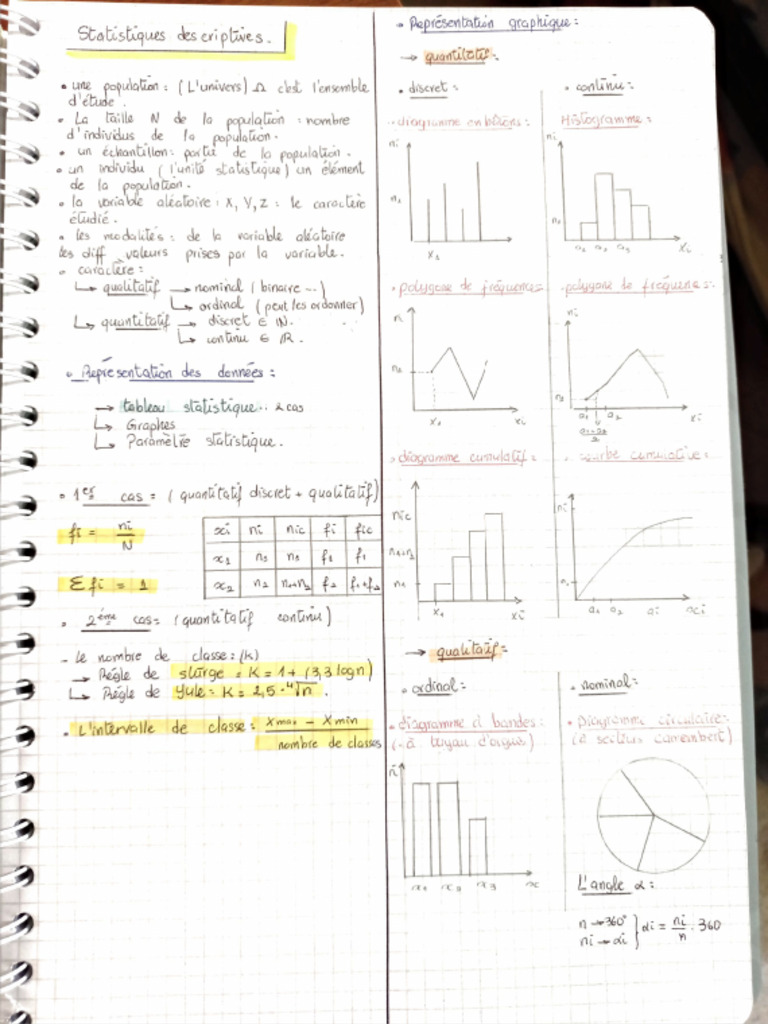 Statistiques descriptives.
• une population : (L'univers) Ω c'est l'ensemble
d'étude.
• La taille N de la population : nombre
d'individus de la population.
• un échantillon : partie de la population.
• un individu (l'unité statistique) un élément
de la population.
• la variable aléatoire : X, Y, Z : le caractère
étudié.
• les modalités : de la variable aléatoire
les diff valeurs prises par la variable.
• caractère :
↳ qualitatif → nominal (binaire ...)
↳ ordinal (peut les ordonner)
↳ quantitatif → discret ∈ IN.
↳ continu ∈ IR.
• Représentation des données :
→ tableau statistique : 2 cas
↳ Graphes
↳ Paramètre statistique.
• 1er cas = (quantitatif discret + qualitatif)
fi = ni/N
Σ fi = 1
xi ni nic fi fic
x1 n1 n1 f1 f1
x2 n2 n1+n2 f2 f1+f2
• 2ème cas = (quantitatif continu)
- le nombre de classe : (k)
→ Règle de sturge = K = 1 + (3,3 log n)
↳ Règle de Yule = K = 2,5 · ⁴√n.
• L'intervalle de classe : Xmax - Xmin / nombre de classes
• Représentation graphique :
→ quantitatif :
• discret :
• continu :
• diagramme en bâtons :
Histogramme :
ni
n1
x1
ni
n1
a1 a2 a3 xi
• polygone de fréquences
• polygone de fréquence :
n
n1
x1 xi
ni
n1
a1 a2 xi
a1+a2/2
• diagramme cumulatif :
• courbe cumulative :
nic
n1+n2
n1
x1 xi
ni
n1
a1 a2 ai xi
→ qualitatif :
• ordinal :
• nominal :
• diagramme à bandes :
(à tuyau d'orgues)
• Diagramme circulaire :
(à secteur camembert)
n
x1 x2 x3 x
L'angle α :
n → 360°
ni → αi } αi = ni/n . 360